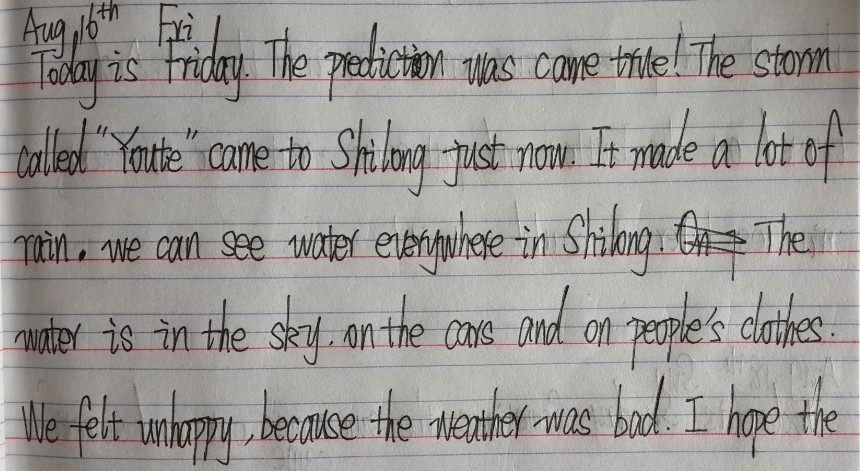 Aug, 16th Fri
Today is Friday. The prediction was came true! The storm
called "Youte" came to Shilong just now. It made a lot of
rain. we can see water everywhere in Shilong. The
water is in the sky. on the cars and on people's clothes.
We felt unhappy, because the weather was bad. I hope the